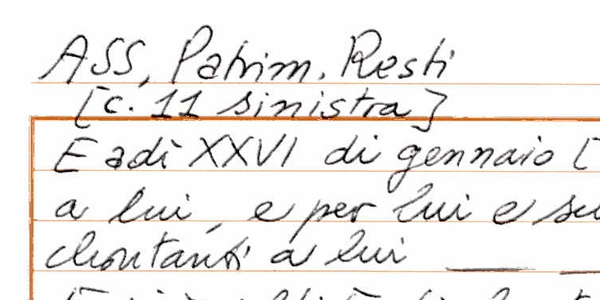 ASS, Patrim. Resti
[c. 11 sinistra]
E adì XXVI di gennaio [
a lui, e per lui e su
chontanti a lui